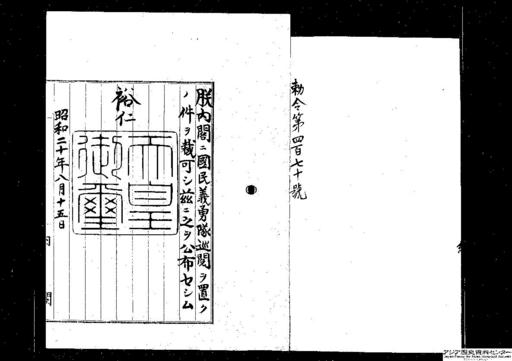 勅令第四百七十號
朕內閣ニ國民義勇隊巡閱ヲ置ク
ノ件ヲ裁可シ玆ニ之ヲ公布セシム
裕仁
天皇御璽
昭和二十年八月十五日
內閣
アジア歴史資料センター